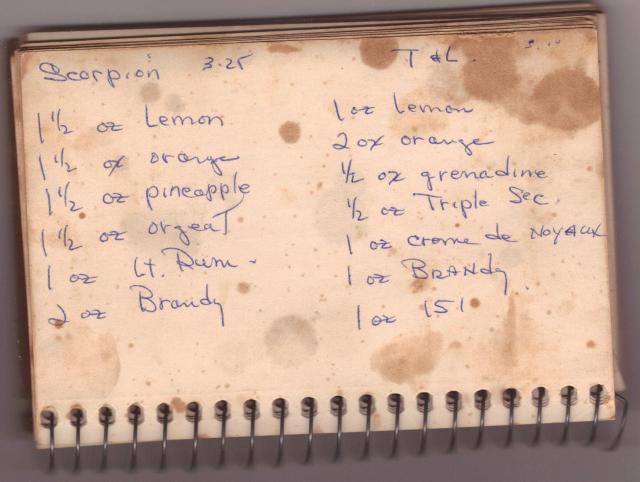 Scorpion 3.25
1 1/2 oz Lemon
1 1/2 oz orange
1 1/2 oz pineapple
1 1/2 oz orgeaT
1 oz Lt. Rum.
2 oz Brandy
T & L.
1 oz lemon
2 oz orange
1/2 oz grenadine
1/2 oz Triple Sec.
1 oz creme de NOYAUX
1 oz BRANdy
1 oz 151